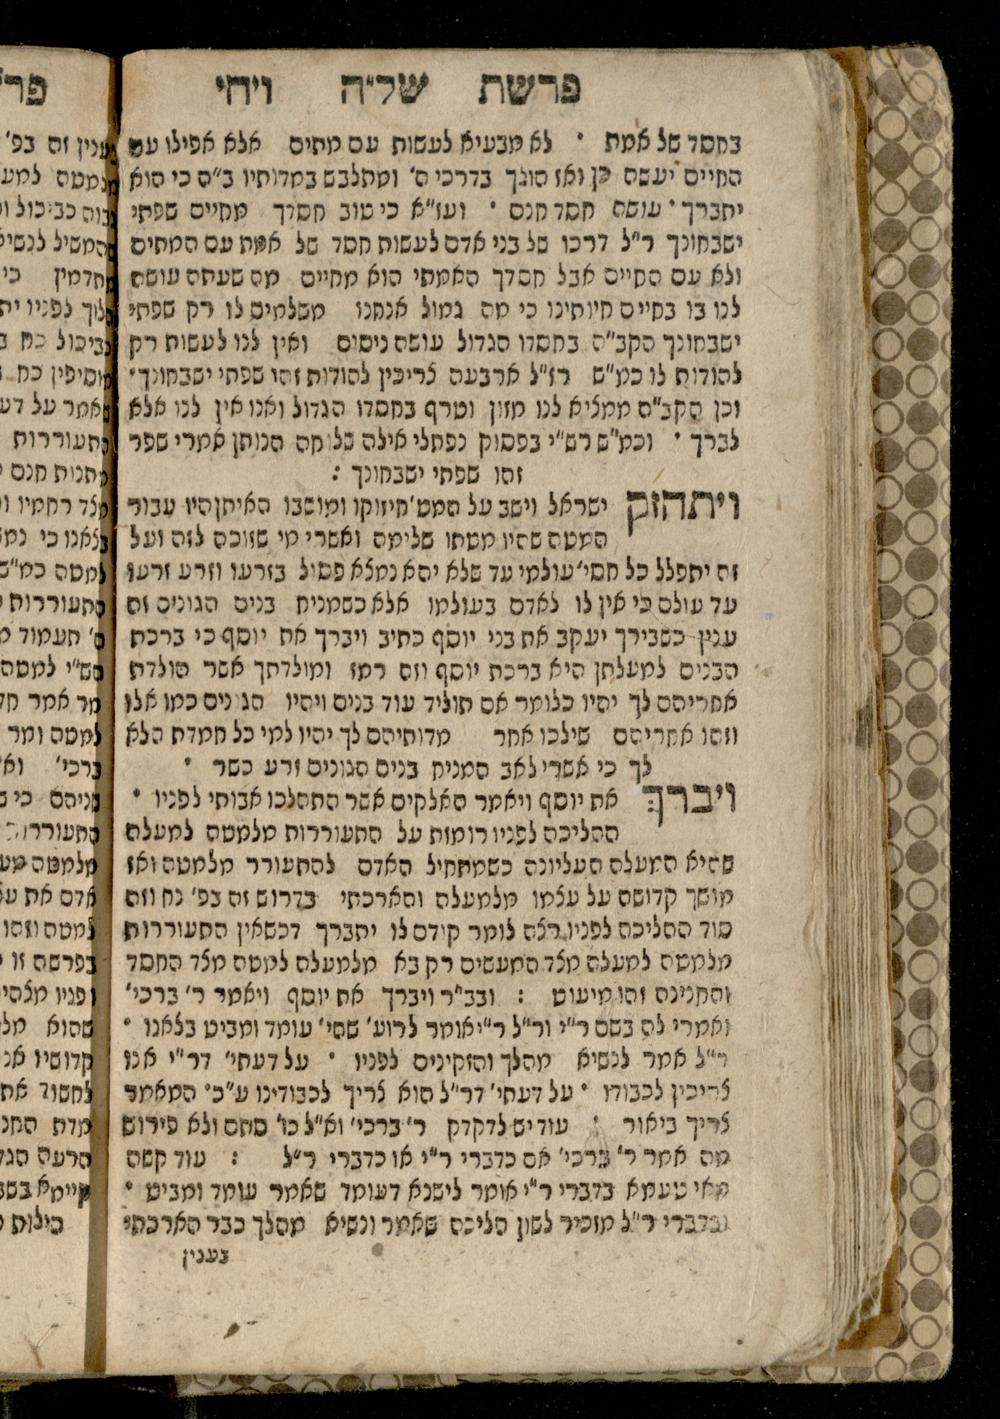 פרשת של״ה ויחי
בחסד של אמת • לא מבעיא לעשות עם מתים אלא אפילו עם
החיים יעשה כן ואז הולך בדרכי ה׳ ומתלבש במדותיו ב״ה כי הוא
יתברך • עושה חסד חנם • וע״א כי טוב חסדך מחיים שפתי
ישבחונך ר״ל דרכו של בני אדם לעשות חסד של אמת עם המתים
ולא עם החיים אבל חסדך האמתי הוא מחיים מה שעתה עושה
לנו בו בחיים חיותינו כי מה גמול אנחנו משלמים לו רק שפתי
ישבחונך הקב״ה בחסדו הגדול עושה ניסים ואין לנו לעשות רק
להודות לו כמ״ש רז״ל ארבעה צריכין להודות זהו שפתי ישבחונך •
וכן הקב״ה ממציא לנו מזון וטרף בחסדו הגדול ואנו אין לנו אלא
לברך • וכמ״ש רש״י בפסוק נפתלי אילה שלוחה הנותן אמרי שפר
זהו שפתי ישבחונך :
ויתחזק ישראל וישב על המט׳ חיזוקו ומושבו האיתן היו עבור
המטה שהיו מטתו שלימה ואשרי מי שזוכה לזה ועל
זה יתפלל כל חסי׳ עולמי עד שלא יהא נמצא פסול בזרעו וזרע זרעו
עד עולם כי אין לו לאדם בעולמו אלא כשמניח בנים הגונים זה
ענין כשבירך יעקב את בני יוסף כתיב ויברך את יוסף כי ברכת
הבנים למעלתן היא ברכת יוסף וזה רמז ומולדתך אשר הולדת
אחריהם לך יהיו כלומר אם תוליד עוד בנים ויהיו הגונים כמו אלו
וזהו אחריהם שילכו אחר מדותיהם לך יהיו למי כל חמדת הלא
לך כי אשרי לאב המניח בנים הגונים זרע כשר •
ויברך את יוסף ויאמר האלקים אשר התהלכו אבותי לפניו •
ההליכה לפניו רומזת על התעוררות מלמטה למעלה
שהיא המעלה העליונה כשמתחיל האדם להתעורר מלמטה ואז
מושך קדושה על עצמו מלמעלה והארכתי בדרוש זה בפ׳ נח וזה
סוד ההליכה לפניו רצה לומר קודם לו יתברך דכשאין התעוררות
מלמטה למעלה מצד המעשים רק בא מלמעלה למטה מצד החסד
והחנינה זהו מיעוט : ובב״ר ויברך את יוסף ויאמר ר׳ ברכי׳
ואמרי לה בשם ר״י ור״ל ר״י אומר לרוע׳ שהי׳ עומד ומביט בצאנו •
ר״ל אמר לנשיא מהלך והזקינים לפניו • על דעתי׳ דר״י אנו
צריכין לכבודו • על דעתי׳ דר״ל הוא צריך לכבודינו ע״כ • המאמר
צריך ביאור : עוד יש לדקדק ר׳ ברכי׳ וא״ל כו׳ סתם ולא פירוש
מה אמר ר׳ ברכי׳ אם כדברי ר״י או כדברי ר״ל : עוד קשה
מאי טעמא בדברי ר״י אומר לישנא דעומד שאמר עומד ומביט •
ובדברי ר״ל מזכיר לשון הליכה שאמר ונשיא מהלך כבר הארכתי
בענין